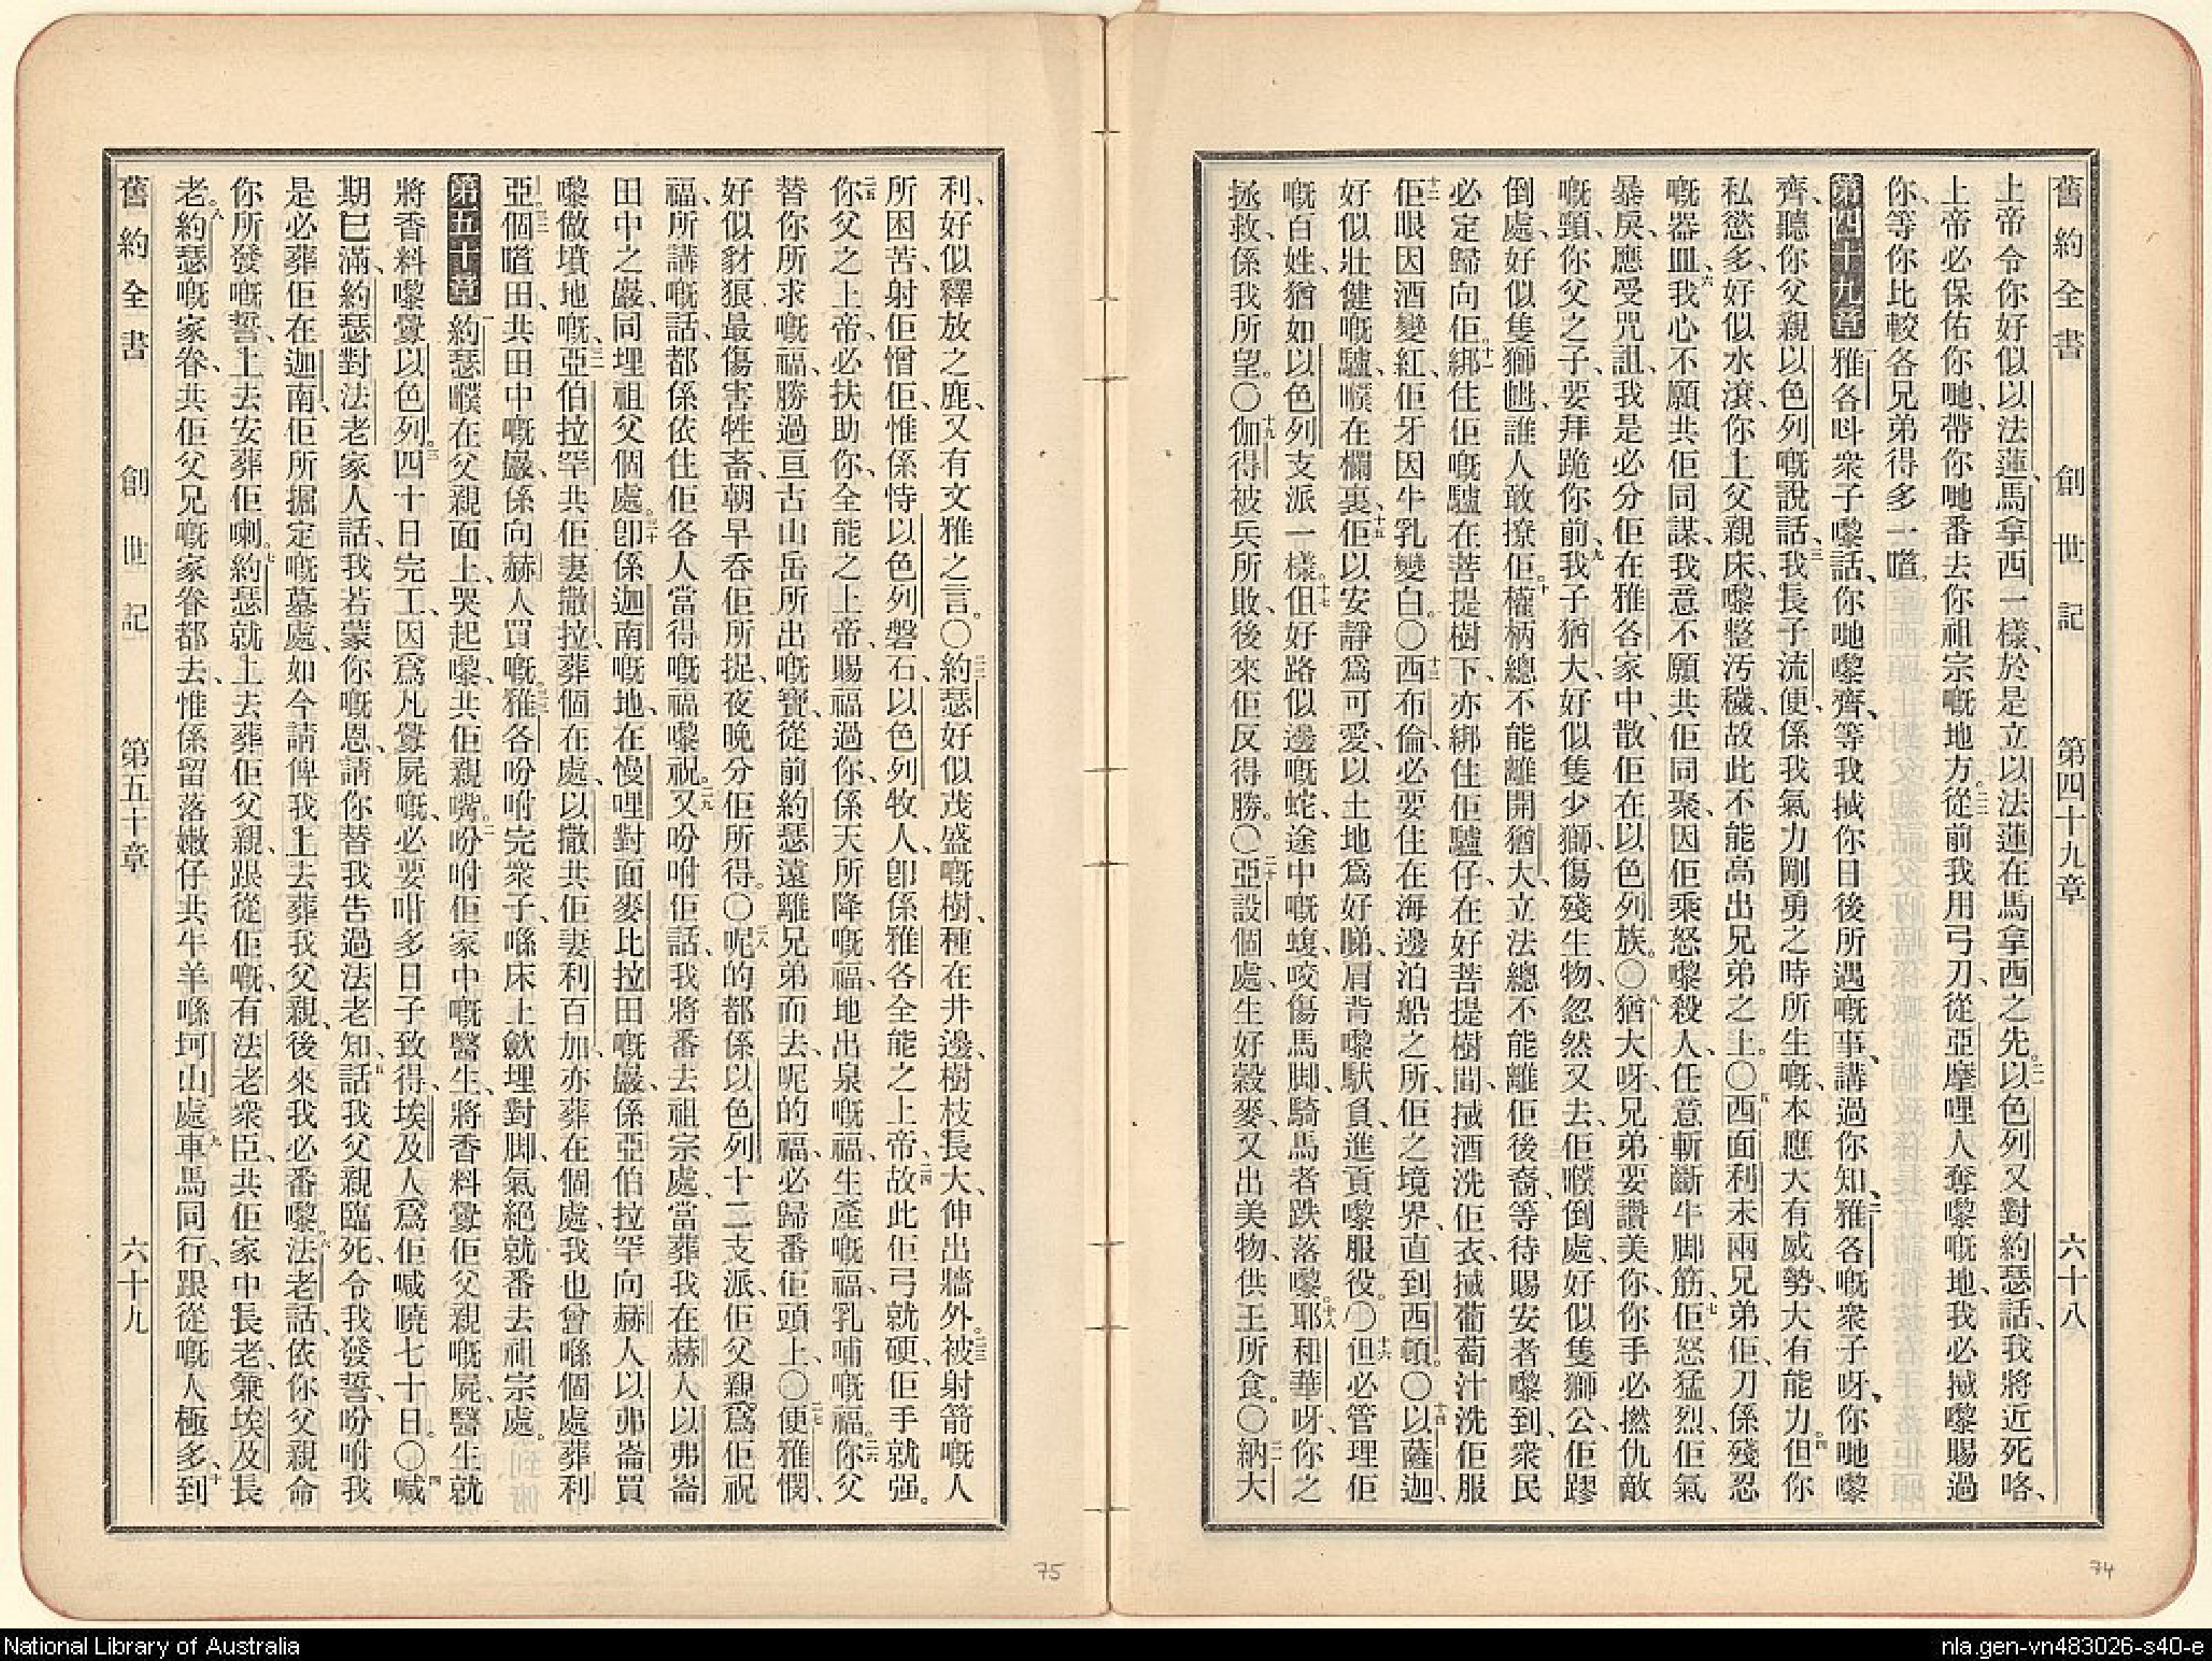 舊約全書 創世記 第四十九章 六十八
上帝令你好似以法蓮、馬拿西一樣、於是立以法蓮在馬拿西之先。二一以色列又對約瑟話、我將近死咯、
上帝必保佑你哋、帶你哋番去你祖宗嘅地方。二二從前我用弓刀、從亞摩哩人奪嚟嘅地、我必搣嚟賜過
你、等你比較各兄弟得多一𠹌。
第四十九章 一雅各呌衆子嚟話、你哋嚟齊、等我搣你日後所遇嘅事、講過你知、二雅各嘅衆子呀、你哋嚟
齊、聽你父親以色列嘅說話、三我長子流便、係我氣力剛勇之時所生嘅、本應大有威勢、大有能力。四但你
私慾多、好似水滾、你上父親床、嚟整汚穢、故此不能高出兄弟之上。〇五西面利未兩兄弟、佢刀係殘忍
嘅器皿、六我心不願共佢同謀、我意不願共佢同聚、因佢乘怒嚟殺人、任意斬斷牛脚筋、七佢怒猛烈、佢氣
暴戾、應受咒詛、我是必分佢在雅各家中、散佢在以色列族。〇八猶大呀、兄弟要讚美你、你手必撚仇敵
嘅頸、你父之子、要拜跪你前、九我子猶大、好似隻少獅、傷殘生物、忽然又去、佢瞨倒處、好似隻獅公、佢躀
倒處、好似隻獅乸、誰人敢撩佢。十權柄總不能離開猶大、立法總不能離佢後裔、等待賜安者嚟到、衆民
必定歸向佢。十一綁住佢嘅驢在菩提樹下、亦綁住佢驢仔、在好菩提樹間、搣酒洗佢衣、搣葡萄汁洗佢服
十二佢眼因酒變紅、佢牙因牛乳變白。〇十三西布倫、必要住在海邊泊船之所、佢之境界、直到西頓。〇十四以薩迦、
好似壯健嘅驢、瞨在欄裏、十五佢以安靜爲可愛、以土地爲好睇、肩背嚟馱負、進貢嚟服役。〇十六但必管理佢
嘅百姓、猶如以色列支派一樣。十七但好路似邊嘅蛇、途中嘅蝮、咬傷馬脚、騎馬者跌落嚟。十八耶和華呀、你之
拯救、係我所望。〇十九伽得被兵所敗、後來佢反得勝。〇二十亞設個處、生好穀麥、又出美物、供王所食。〇二一納大
利、好似釋放之鹿、又有文雅之言。〇二二約瑟好似茂盛嘅樹、種在井邊、樹枝長大、伸出牆外。二三被射箭嘅人
所困苦、射佢憎佢、惟係恃以色列磐石、以色列牧人、卽係雅各全能之上帝、二四故此佢弓就硬、佢手就强。
二五你父之上帝、必扶助你、全能之上帝、賜福過你、係天所降嘅福、地出泉嘅福、生產嘅福、乳哺嘅福。二六你父
替你所求嘅福、勝過亘古山岳所出嘅寶、從前約瑟遠離兄弟而去、呢的福、必歸番佢頭上、〇二七便雅憫、
好似豺狼最傷害牲畜、朝早呑佢所捉、夜晚分佢所得。〇二八呢的都係以色列十二支派、佢父親爲佢祝
福、所講嘅話、都係依住佢各人當得嘅福嚟祝。二九又吩咐佢話、我將番去祖宗處、當葬我在赫人以弗崙
田中之巖、同埋祖父個處。三十卽係迦南嘅地、在慢哩對面、麥比拉田嘅巖、係亞伯拉罕向赫人以弗崙買
嚟做墳地嘅、三一亞伯拉罕共佢妻撒拉、葬個在處、以撒共佢妻利百加、亦葬在個處、我也曾喺個處葬利
亞。三二個𠹌田、共田中嘅巖、係向赫人買嘅。三三雅各吩咐完衆子、喺床上歛埋對脚、氣絕就番去祖宗處。
第五十章 一約瑟瞨在父親面上、哭起嚟、共佢親嘴。二吩咐佢家中嘅醫生、將香料爨佢父親嘅屍、醫生就
將香料嚟爨以色列。三四十日完工、因爲凡爨屍嘅、必要咁多日子致得、埃及人爲佢喊曉七十日。〇四喊
期已滿、約瑟對法老家人話、我若蒙你嘅恩、請你替我告過法老知、五話我父親臨死、令我發誓、吩咐我
是必葬佢在迦南、佢所掘定嘅墓處、如今請俾我上去葬我父親、後來我必番嚟。六法老話、依你父親命
你所發嘅誓、上去安葬佢喇。七約瑟就上去葬佢父親、跟從佢嘅、有法老衆臣、共佢家中長老、兼埃及長
老。八約瑟嘅家眷、共佢父兄嘅家眷都去、惟係留落嫩仔共牛羊喺坷山處、九車馬同行、跟從嘅人極多、十到
舊約全書 創世記 第五十章 六十九
75
74
National Library of Australia
nla.gen-vn483026-s40-e